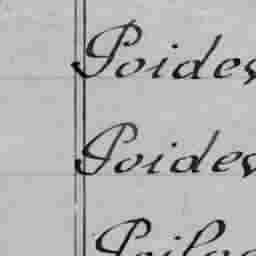 Poidev
Poidev